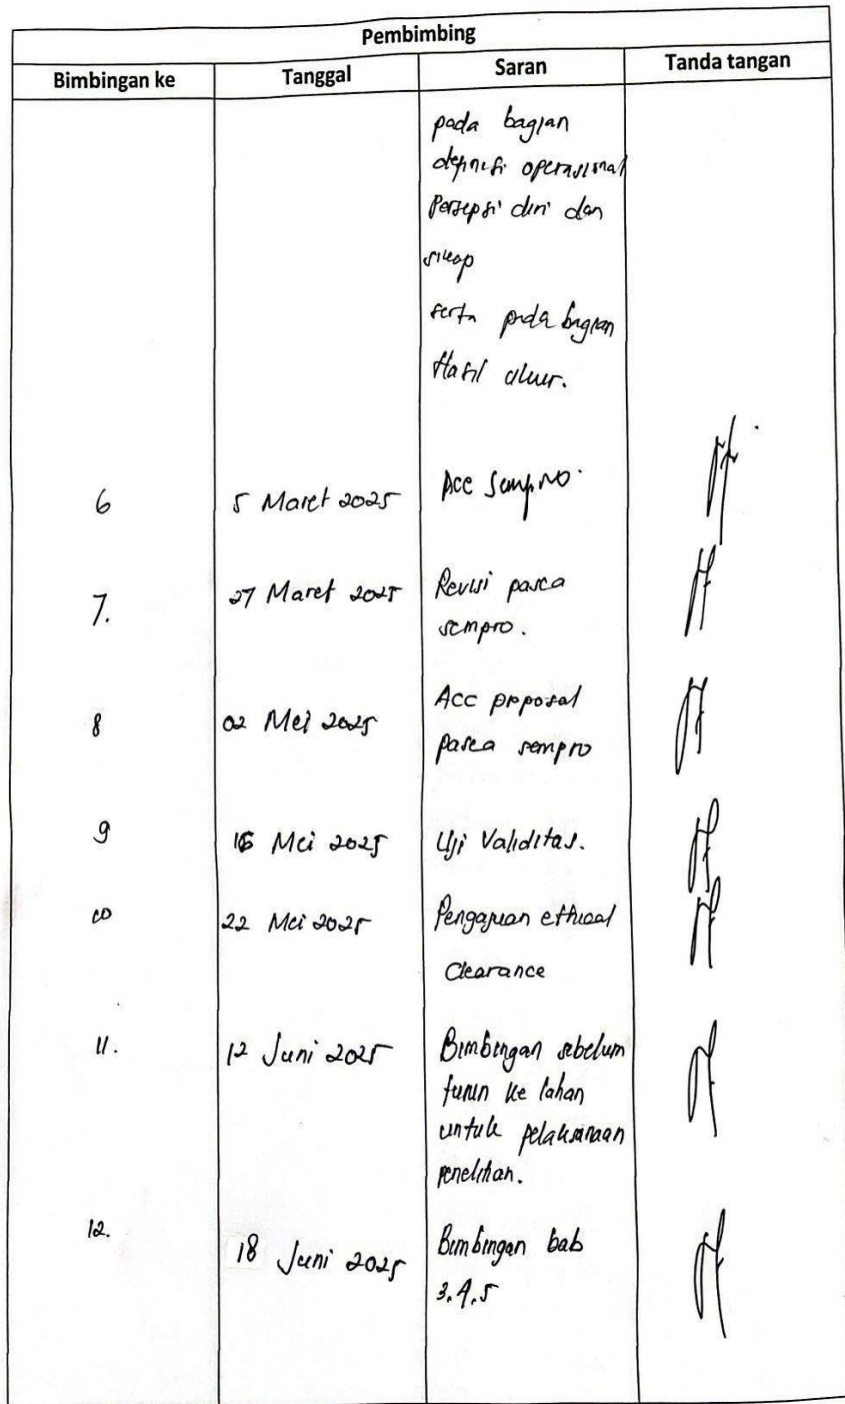 Pembimbing
Bimbingan ke Tanggal Saran Tanda tangan
pada bagian
definisi operasional
Persepsi diri dan
sikap
serta pada bagian
Hasil ukur.
6 5 Maret 2025 Acc Sempro.
7. 27 Maret 2025 Revisi pasca
sempro.
8 02 Mei 2025 Acc proposal
pasca sempro
9 16 Mei 2025 Uji Validitas.
10 22 Mei 2025 Pengajuan ethical
Clearance
11. 12 Juni 2025 Bimbingan sebelum
turun ke lahan
untuk pelaksanaan
penelitian.
12. 18 Juni 2025 Bimbingan bab
3.4.5